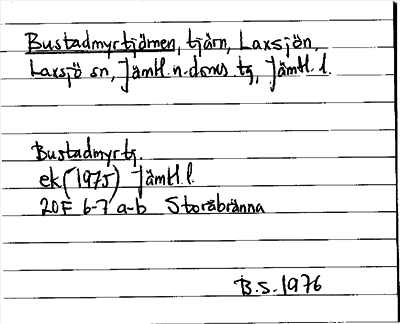 Bustadmyrtjärnen, tjärn, Laxsjön,
Laxsjö sn, Jämtl. n. doms. tg, Jämtl. l.
Bustadmyrtj.
ek (1975) Jämtl. l.
20F 6-7 a-b Storåbränna
B.S. 1976